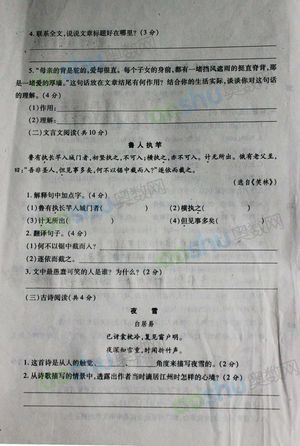 4. 联系全文,说说文章标题好在哪里?(3分)
5. "母亲的背是驼的,爱却很直。每个子女的身前,都有一堵挡风遮雨的挺直脊背,那
是一堵爱的厚墙。"这句话放在文章结尾有何作用?结合你的生活实际,谈谈你对这句话
的理解。(4分)
(1)作用:
(2)理解:
(二)文言文阅读(共10分)
鲁人执竿
鲁有执长竿入城门者,初竖执之,不可入;横执之,亦不可入。计无所出。俄有老父至,
曰:"吾非圣人,但见事多矣,何不以锯中截而入?"遂依而截之。
(选自《笑林》)
1. 解释句中加点字。(4分)
(1)鲁有执长竿入城门者( )
(2)横执之( )
(3)计无所出( )
(4)但见事多矣( )
2. 翻译句子。(4分)
(1)何不以锯中截而入?
(2)遂依而截之。
3. 文中最愚蠢可笑的人是谁?为什么?(2分)
(三)古诗阅读(共4分)
夜 雪
白居易
已讶衾枕冷,复见窗户明。
夜深知雪重,时闻折竹声。
1. 这首诗是从人的触觉、 、 角度来描写夜雪的。(2分)
2. 从诗歌描写的情景中,透露出作者当时谪居江州时怎样的心境?(2分)